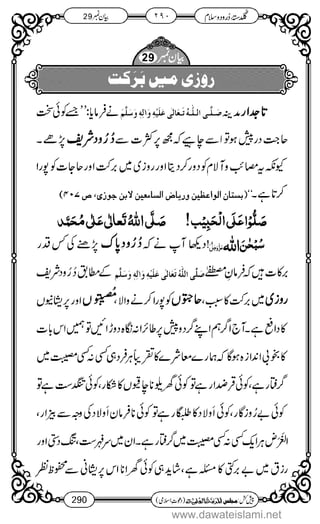 بیان نمبر 29
۲۹۰
گلدستۂ درود و سلام
بیان نمبر 29
روزی میں بَرَکت
تاجدارِ مدینہ صَلَّی اللہُ تَعَالٰی عَلَیْہِ وَاٰلِہٖ وَسَلَّمَ نے فرمایا: ’’جسے کوئی سخت
حاجت درپیش ہو تو اسے چاہیے کہ مجھ پر کثرت سے دُرُود شریف پڑھے۔
کیونکہ یہ مصائب و آلام کو دور کردیتا اور روزی میں برکت اور حاجات کو پورا
کرتا ہے۔‘‘ (بستان الواعظین وریاض السامعین لابن جوزی، ص ۴۰۷)
صَلُّوْا عَلَی الْحَبِیْب! صَلَّی اللہُ تَعَالٰی عَلٰی مُحَمَّد
سُبْحٰنَ اللہ عَزَّوَجَلَّ! دیکھا آپ نے کہ دُرُودِ پاک پڑھنے کی کس قدر
برکات ہیں کہ فرمانِ مصطفٰے صَلَّی اللہُ تَعَالٰی عَلَیْہِ وَاٰلِہٖ وَسَلَّمَ کے مطابق دُرُود شریف
روزی میں برکت کا سبب، حاجتوں کو پورا کرنے والا، مُصیبتوں اور پریشانیوں
کا دافع ہے۔ آج اگر ہم اپنے گردوپیش پر طائرانہ نگاہ دوڑائیں تو ہمیں اس بات
کا بخوبی اندازہ ہوگا کہ ہمارے معاشرے کا تقریباً ہر فرد ہی کسی نہ کسی مصیبت میں
گرفتار ہے، کوئی قرضدار ہے تو کوئی گھریلو ناچاقیوں کا شکار، کوئی تنگدست ہے تو
کوئی بے روزگار، کوئی اولاد کا طلبگار ہے تو کوئی نافرمان اولاد کی وجہ سے بیزار،
اَلغَرَض ہر ایک کسی نہ کسی مصیبت میں گرفتار ہے۔ ان میں سرِفہرست تنگدستی اور
رزق میں بے برکتی کا مسئلہ ہے، شاید ہی کوئی گھرانا اس پریشانی سے محفوظ نظر
290
پیش کش: مجلس اَلْمَدِیْنَۃُ الْعِلْمِیَّۃ (دعوتِ اسلامی)
www.dawateislami.net